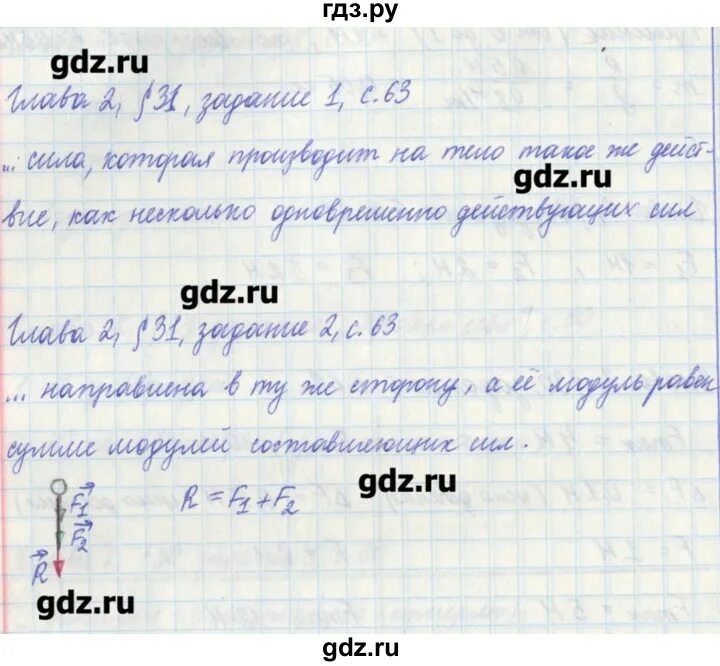 гдз.ру
gdz.ru
Глава 2, §31, задание 1, с.63
... сила, которая производит на тело такое же дейст-
gdz.ru
вие, как несколько одновременно действующих сил
gdz.ru
Глава 2, §31, задание 2, с.63
... направлена в ту же сторону, а её модуль равен
сумме модулей составляющих сил.
gdz.ru
F₁ R = F₁ + F₂
F₂
R
gdz.ru
gdz.ru